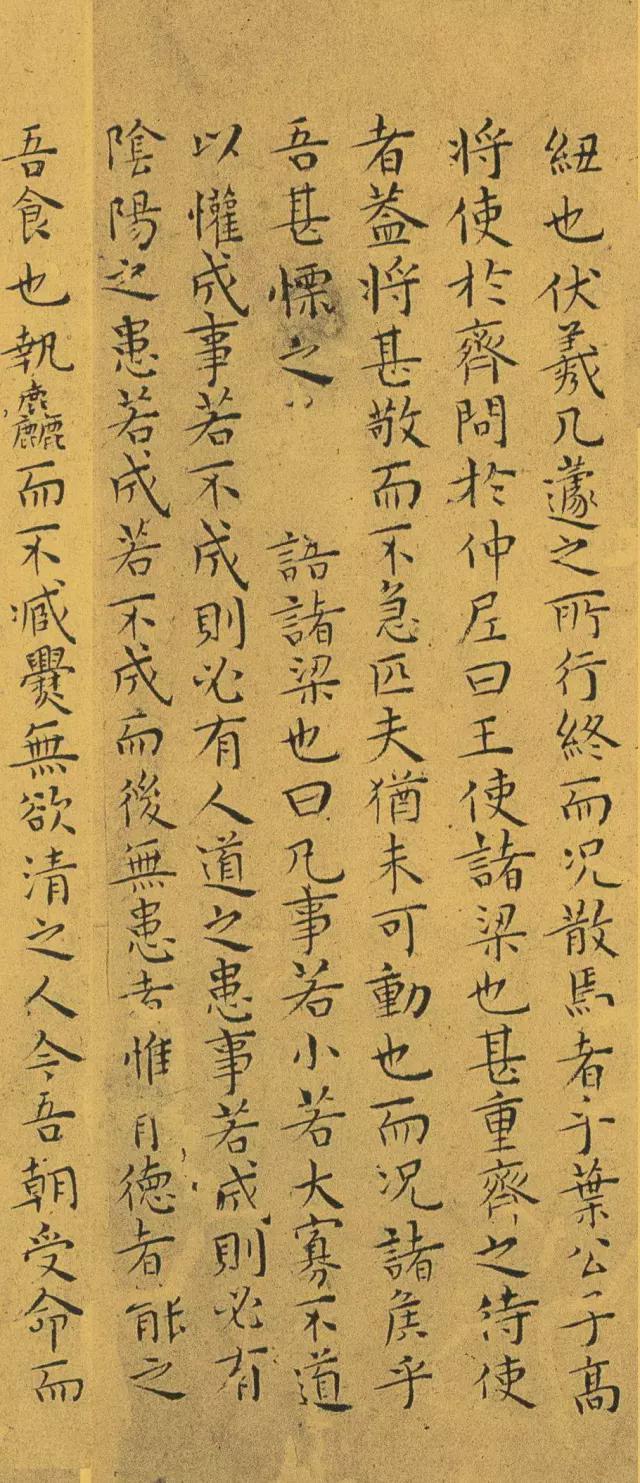 紐也伏羲几蘧之所行終而况散焉者乎葉公子高
將使於齊問於仲尼曰王使諸梁也甚重齊之待使
者蓋將甚敬而不急匹夫猶未可動也而况諸侯乎
吾甚慄之 語諸梁也曰凡事若小若大寡不道
以懽成事若不成則必有人道之患事若成則必有
陰陽之患若成若不成而後無患者惟有德者能之
吾食也執麤而不臧爨無欲清之人今吾朝受命而